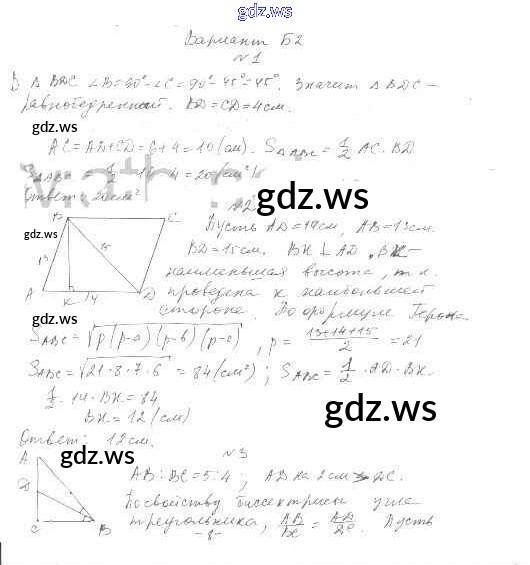 gdz.ws
Вариант Б2
№1
В ΔBDC ∠B=90°-∠C=90°-45°=45°. Значит ΔBDC -
равнобедренный. BD=CD=4см.
gdz.ws
AC=AD+CD=6+4=10(см). SΔABC=1/2 AC·BD
SΔABC=1/2·10·4=20(см²)
Ответ: 20см²
gdz.ws
№2
gdz.ws
Пусть AD=14см, AB=13см.
BD=15см. BK⊥AD, BK-
наименьшая высота, т.к.
проведена к наибольшей
стороне. По формуле Герона
B C 13 15 A K 14 D
gdz.ws
SABC=√p(p-a)(p-b)(p-c), p=(13+14+15)/2=21
SABC=√21·8·7·6=84(см²); SABC=1/2·AD·BK
1/2·14·BK=84
BK=12(см)
gdz.ws
Ответ: 12см.
№3
gdz.ws
A D C B
AB:BC=5:4; AD на 2см > DC.
По свойству биссектрисы угла
треугольника, AB/BC=AD/DC. Пусть
-8-
gdz.ws